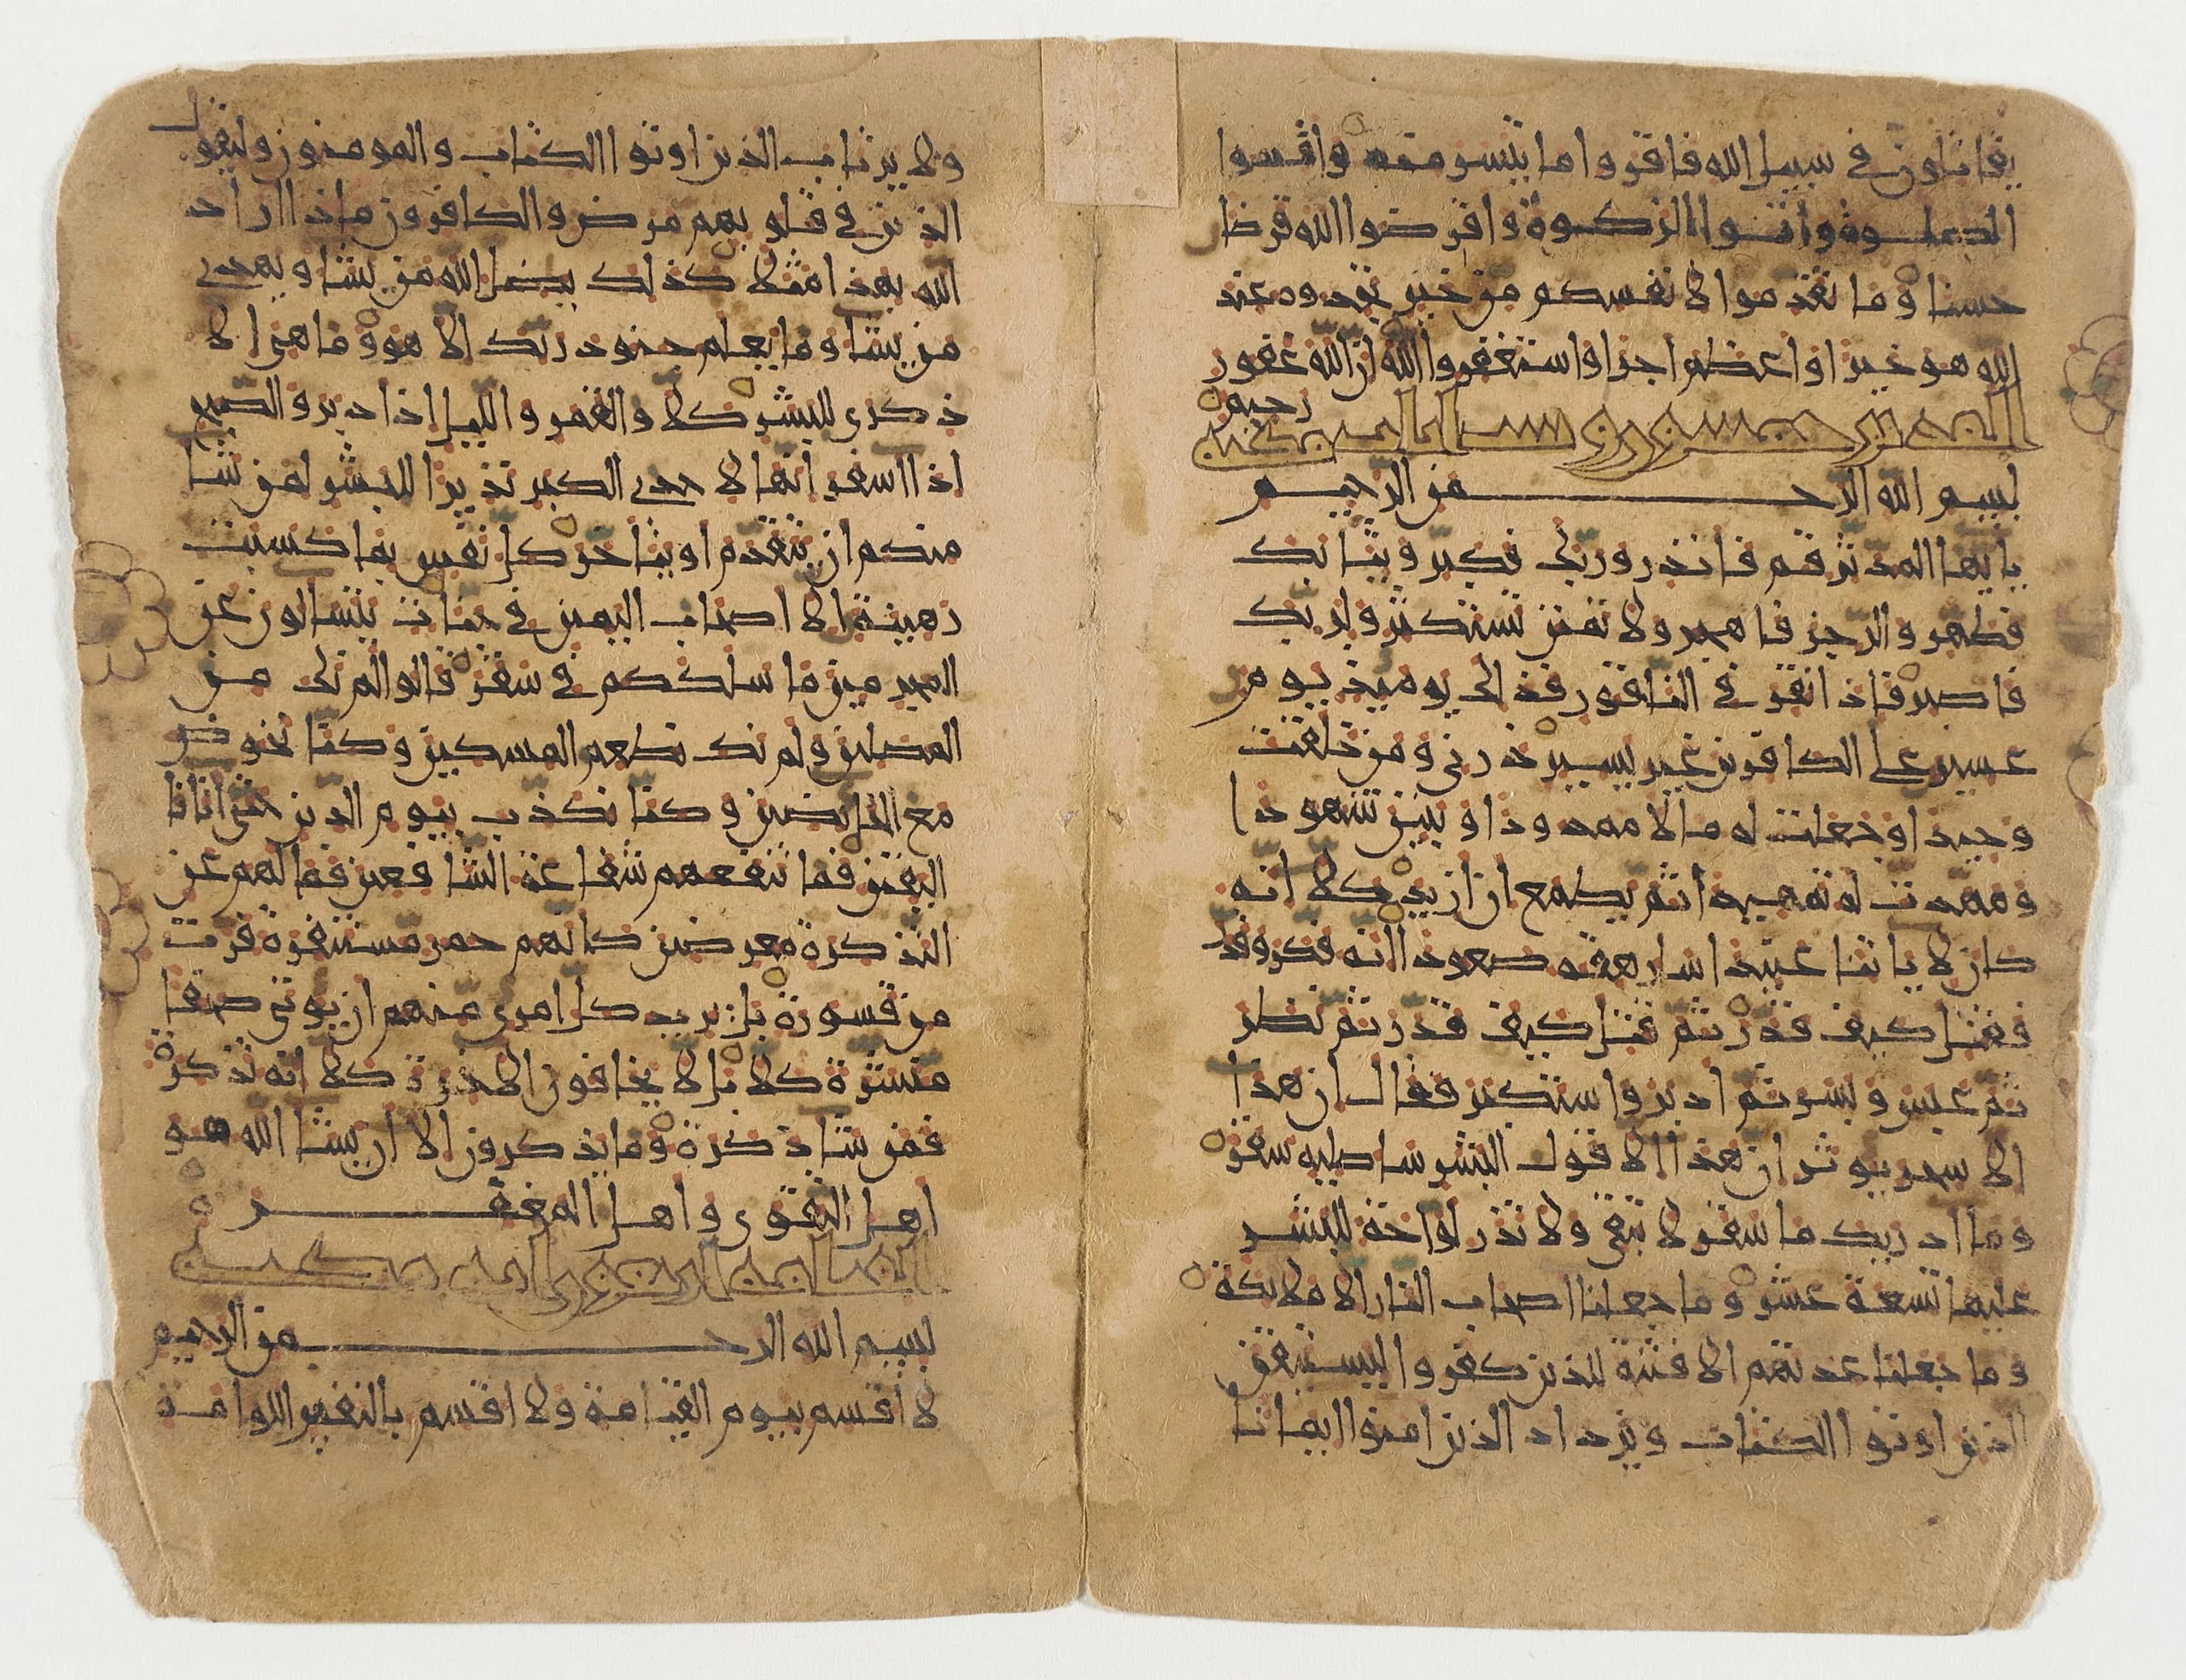 يقاتلون في سبيل الله فاقروا ما تيسر منه واقيموا
الصلوة واتوا الزكوة واقرضوا الله قرضا
حسنا وما تقدموا لانفسكم من خير تجدوه عند
الله هو خيرا واعظم اجرا واستغفروا الله ان الله غفور
رحيم
بسم الله الرحمن الرحيم
يا يها المدثر قم فانذر وربك فكبر وثيابك
فطهر والرجز فاهجر ولا تمنن تستكثر ولربك
فاصبر فاذا نقر في الناقور فذلك يوميذ يوم
عسير على الكافرين غير يسير ذرني ومن خلقت
وحيدا وجعلت له مالا ممدودا وبنين شهودا
ومهدت له تمهيدا ثم يطمع ان ازيد كلا انه
كان لاياتنا عنيدا سارهقه صعودا انه فكر وقدر
فقتل كيف قدر ثم قتل كيف قدر ثم نظر
ثم عبس وبسر ثم ادبر واستكبر فقال ان هذا
الا سحر يوثر ان هذا الا قول البشر ساصليه سقر
وما ادريك ما سقر لا تبقي ولا تذر لواحة للبشر
عليها تسعة عشر وما جعلنا اصحاب النار الا ملايكة
وما جعلنا عدتهم الا فتنة للذين كفروا ليستيقن
الذين اوتوا الكتاب ويزداد الذين امنوا ايمانا
ولا يرتاب الذين اوتوا الكتاب والمومنون وليقول
الذين في قلوبهم مرض والكافرون ماذا اراد
الله بهذا مثلا كذلك يضل الله من يشا ويهدي
من يشا وما يعلم جنود ربك الا هو وما هي الا
ذكرى للبشر كلا والقمر والليل اذا دبر والصبح
اذا اسفر انها لاحدى الكبر نذيرا للبشر لمن شا
منكم ان يتقدم او يتاخر كل نفس بما كسبت
رهينة الا اصحاب اليمين في جنات يتسالون عن
المجرمين ما سلككم في سقر قالوا لم نك من
المصلين ولم نك نطعم المسكين وكنا نخوض
مع الخايضين وكنا نكذب بيوم الدين حتى اتانا
اليقين فما تنفعهم شفاعة الشافعين فما لهم عن
التذكرة معرضين كانهم حمر مستنفرة فرت
من قسورة بل يريد كل امرى منهم ان يوتى صحفا
منشرة كلا بل لا يخافون الاخرة كلا انه تذكرة
فمن شا ذكره وما يذكرون الا ان يشا الله هو
اهل التقوى واهل المغفرة
بسم الله الرحمن الرحيم
لا اقسم بيوم القيامة ولا اقسم بالنفس اللوامة